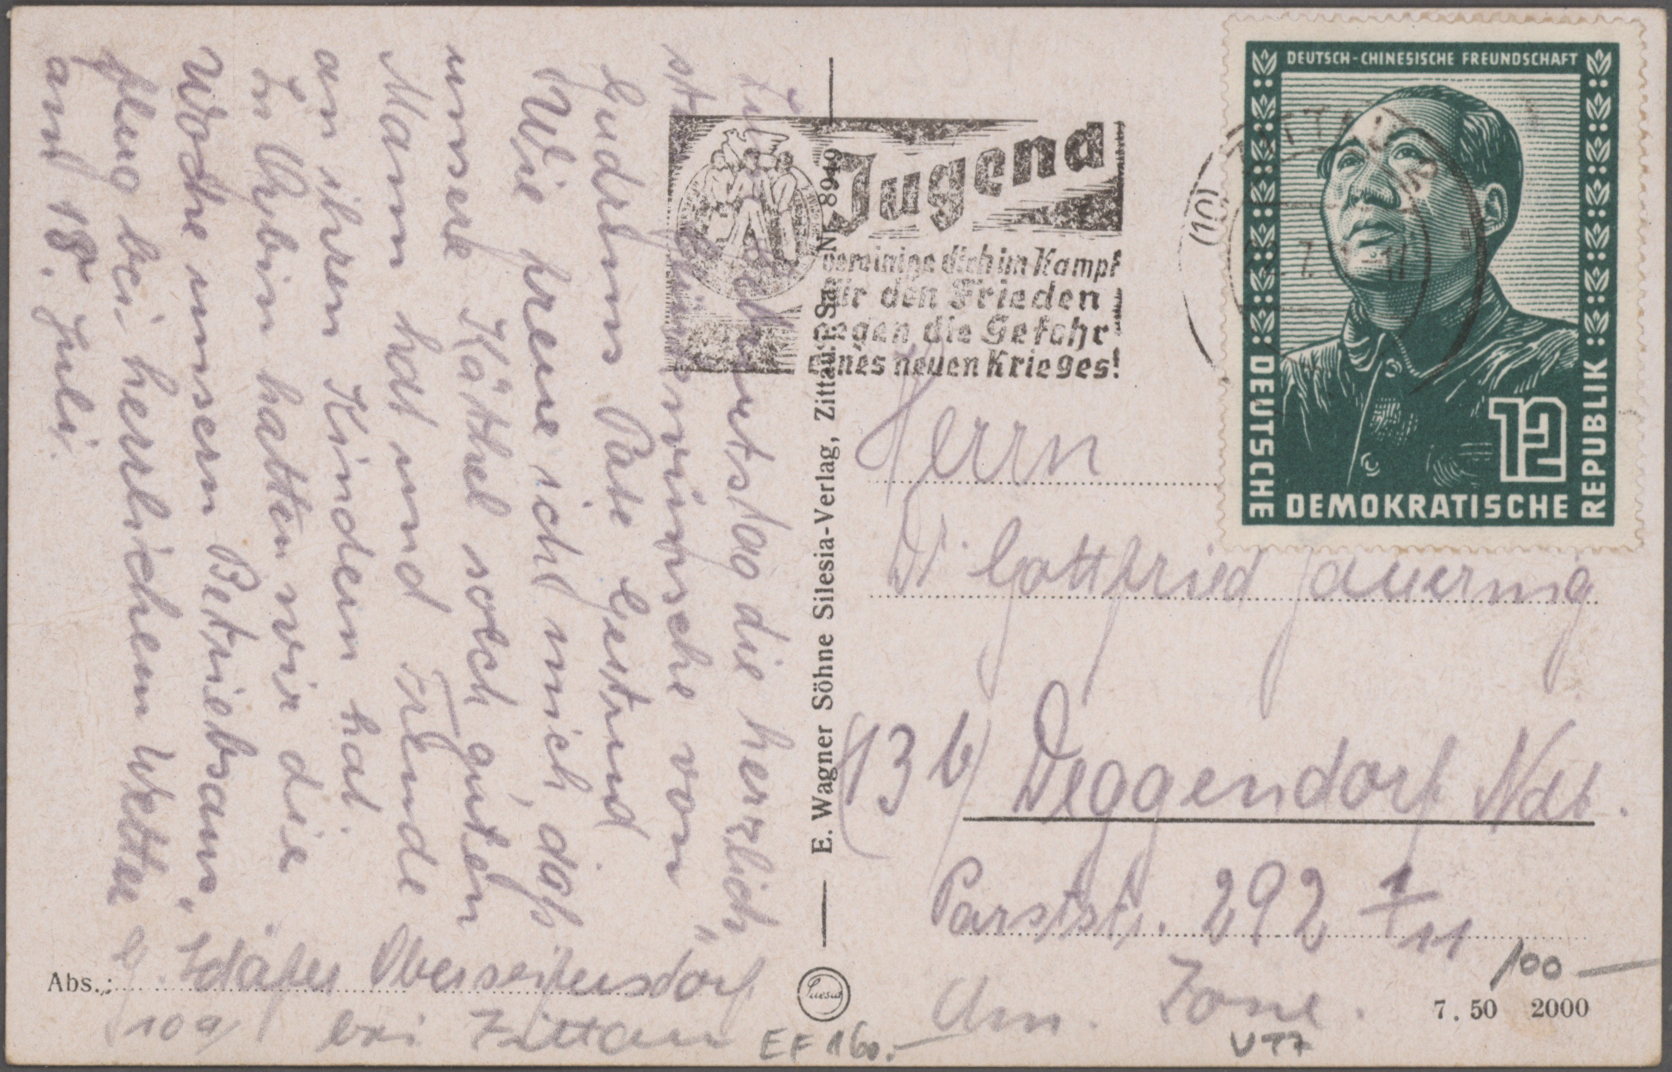 Zum Geburtstag die herzlich
sten Glückwünsche von
Gudruns Pate Gertrud
Wie freue ich mich daß
unsere Käthel solch guten
Mann hat und Freude
an ihren Kindern hat.
In Oybin hatten wir die
Woche unsern Betriebsaus„
flug bei herrlichem Wetter
am 18. Juli.
Abs.: G. Schäfer Oberseifersdorf
10a) bei Zittau
E. Wagner Söhne Silesia-Verlag, Zittau i. Sa. Nr. 8949
Silesia
Jugend
vereinige dich im Kampf
für den Frieden
gegen die Gefahr
eines neuen Krieges!
(10)
ZITTAU
7.
17
DEUTSCH-CHINESISCHE FREUNDSCHAFT
12
DEUTSCHE DEMOKRATISCHE REPUBLIK
Herrn
Dr Gottfried Jauernig
(13b) Deggendorf Ndb.
292
Am. Zone.
7.50 2000
100 —
EF 160.—